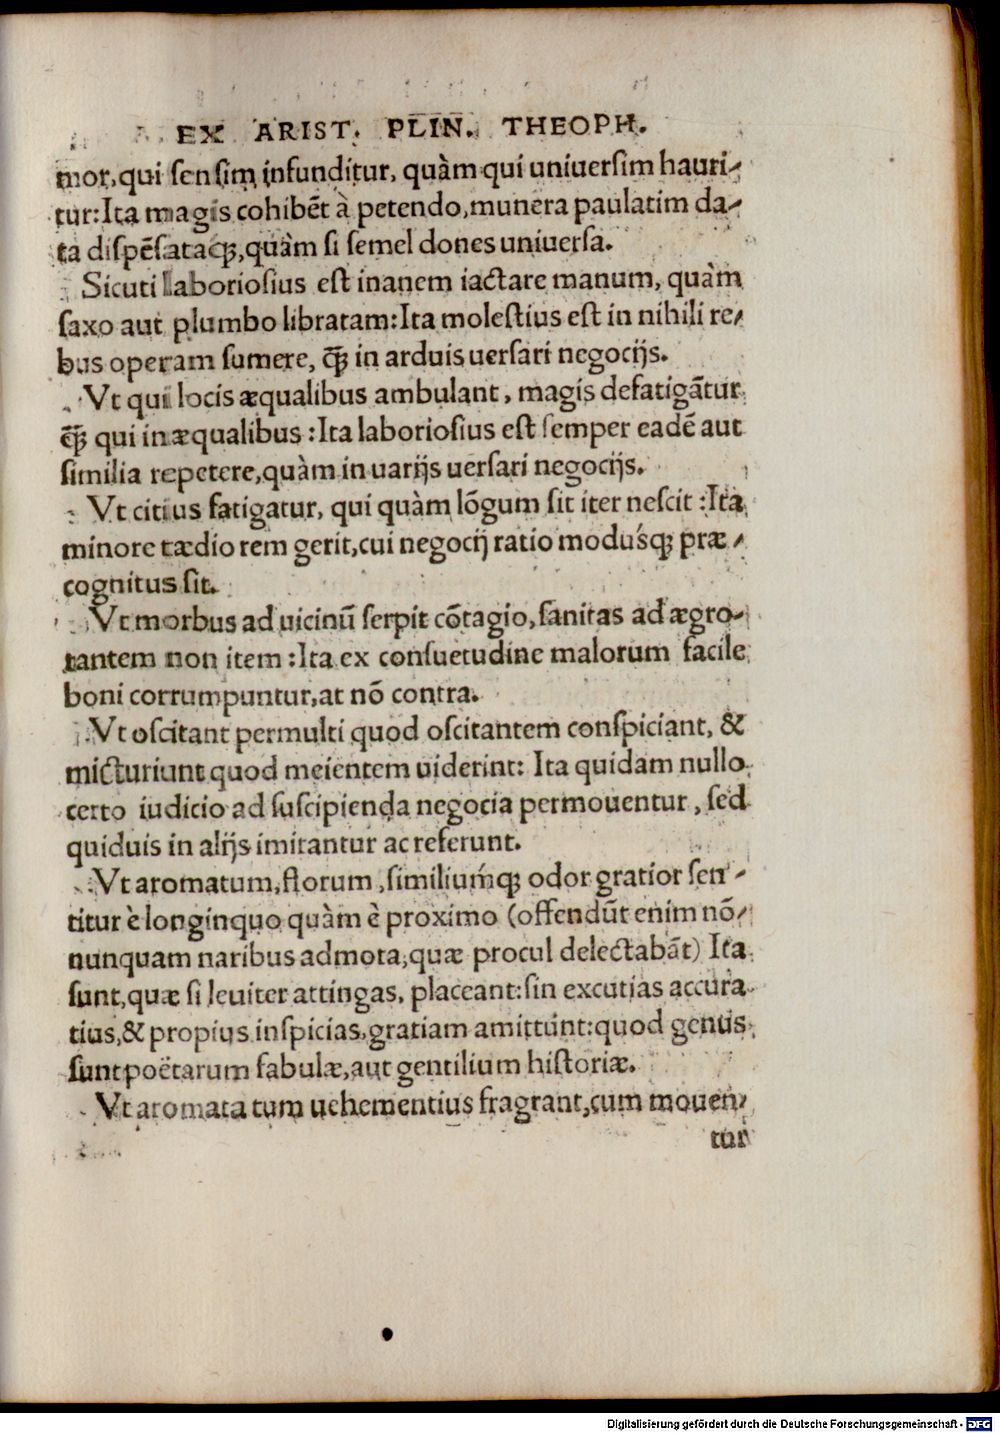 EX ARIST. PLIN. THEOPH.
mor, qui sensim infunditur, quàm qui uniuersim hauri-
tur: Ita magis cohibẽt à petendo, munera paulatim da-
ta dispẽsataq́ꝫ, quàm si semel dones uniuersa.
Sicuti laboriosius est inanem iactare manum, quàm
saxo aut plumbo libratam: Ita molestius est in nihili re-
bus operam sumere, q̃ꝫ in arduis uersari negocijs.
Vt qui locis æqualibus ambulant, magis defatigãtur
q̃ꝫ qui inæqualibus: Ita laboriosius est semper eadẽ aut
similia repetere, quàm in uarijs uersari negocijs.
Vt citius fatigatur, qui quàm lõgum sit iter nescit: Ita
minore tædio rem gerit, cui negocij ratio modusq́ꝫ præ-
cognitus sit.
Vt morbus ad uicinũ serpit cõtagio, sanitas ad ægro-
tantem non item: Ita ex consuetudine malorum facile
boni corrumpuntur, at nõ contra.
Vt oscitant permulti quod oscitantem conspiciant, &
micturiunt quod meientem uiderint: Ita quidam nullo
certo iudicio ad suscipienda negocia permouentur, sed
quiduis in alijs imitantur ac referunt.
Vt aromatum, florum, similiumq́ꝫ odor gratior sen-
titur è longinquo quàm è proximo (offendũt enim nõ-
nunquam naribus admota, quæ procul delectabãt) Ita
sunt, quæ si leuiter attingas, placeant: sin excutias accura
tius, & propius inspicias, gratiam amittunt: quod genus
sunt poëtarum fabulæ, aut gentilium historiæ.
Vt aromata tum uehementius fragrant, cum mouen-
tur
Digitalisierung gefördert durch die Deutsche Forschungsgemeinschaft - DFG